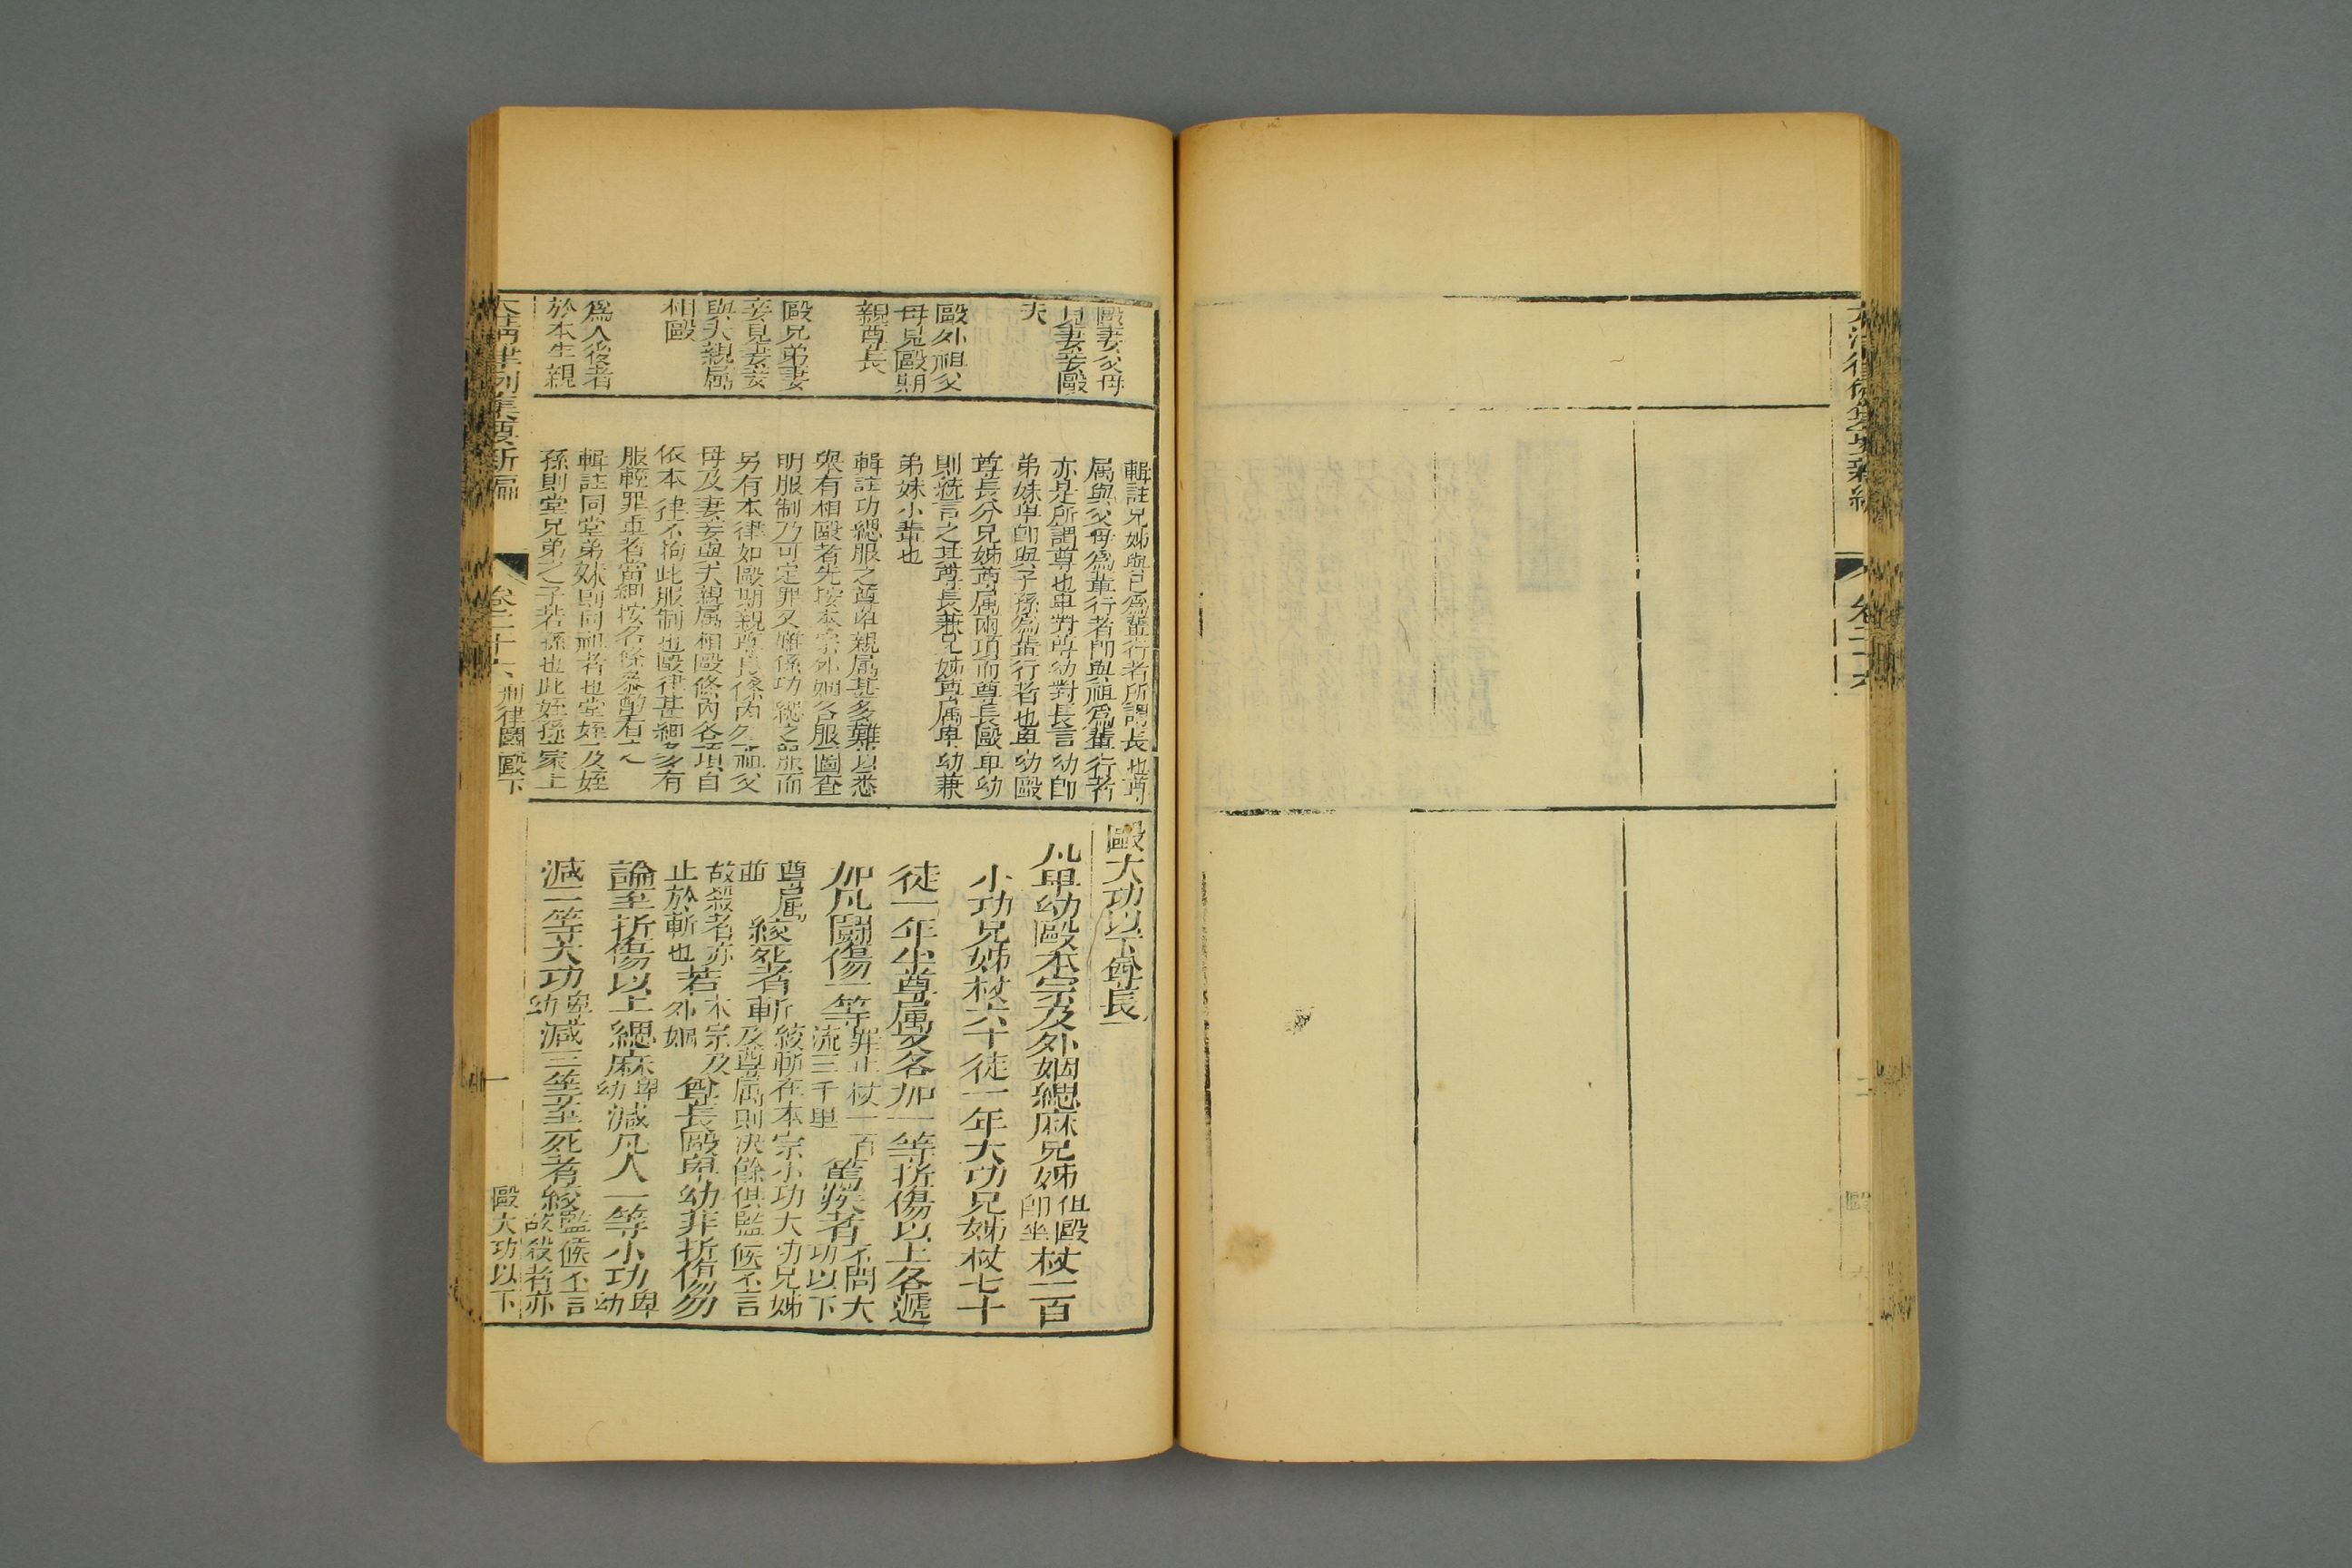 大清律例集要新編
卷二十六
二
毆妻父母
見妻妾毆
夫
毆外祖父
母見毆期
親尊長
毆兄弟妻
妾見妻妾
與夫親属
相毆
為人後者
於本生親
輯註兄姊與已為輩行者所謂長也尊
属與父母為輩行者即與祖為輩行者
亦是所謂尊也卑對尊幼對長言幼即
弟妹卑即與子孫為輩行者也卑幼毆
尊長分兄姊尊属兩項而尊長毆卑幼
則統言之其尊長兼兄姊尊属卑幼兼
弟妹小輩也
輯註功緦服之尊卑親属甚多難以悉
舉有相毆者先按本宗外姻各服圖查
明服制乃可定罪又雖係功緦之服而
另有本律如毆期親尊長條内外祖父
母及妻妾與夫親属相毆條内各項自
依本律不拘此服制也毆律甚細多有
服輕罪重者當細按各條叅酌有之
輯註同堂弟妹則同祖者也堂姪及姪
孫則堂兄弟之子若孫也此姪孫蒙上
毆大功以下尊長
凡卑幼毆本宗及外姻緦麻兄姊但毆即坐杖一百
小功兄姊杖六十徒一年大功兄姊杖七十
徒一年半尊属又各加一等折傷以上各遞
加凡鬬傷一等罪止杖一百流三千里篤疾者不問大功以下
尊属並絞死者斬絞斬在本宗小功大功兄姊及尊属則決餘俱監候不言
故殺者亦止於斬也若本宗及外姻尊長毆卑幼非折傷勿
論至折傷以上緦麻卑幼減凡人一等小功卑幼
減二等大功卑幼減三等至死者絞監候不言故殺者亦
大清律例集要新編
卷二十六
刑律鬬毆下
一
毆大功以下